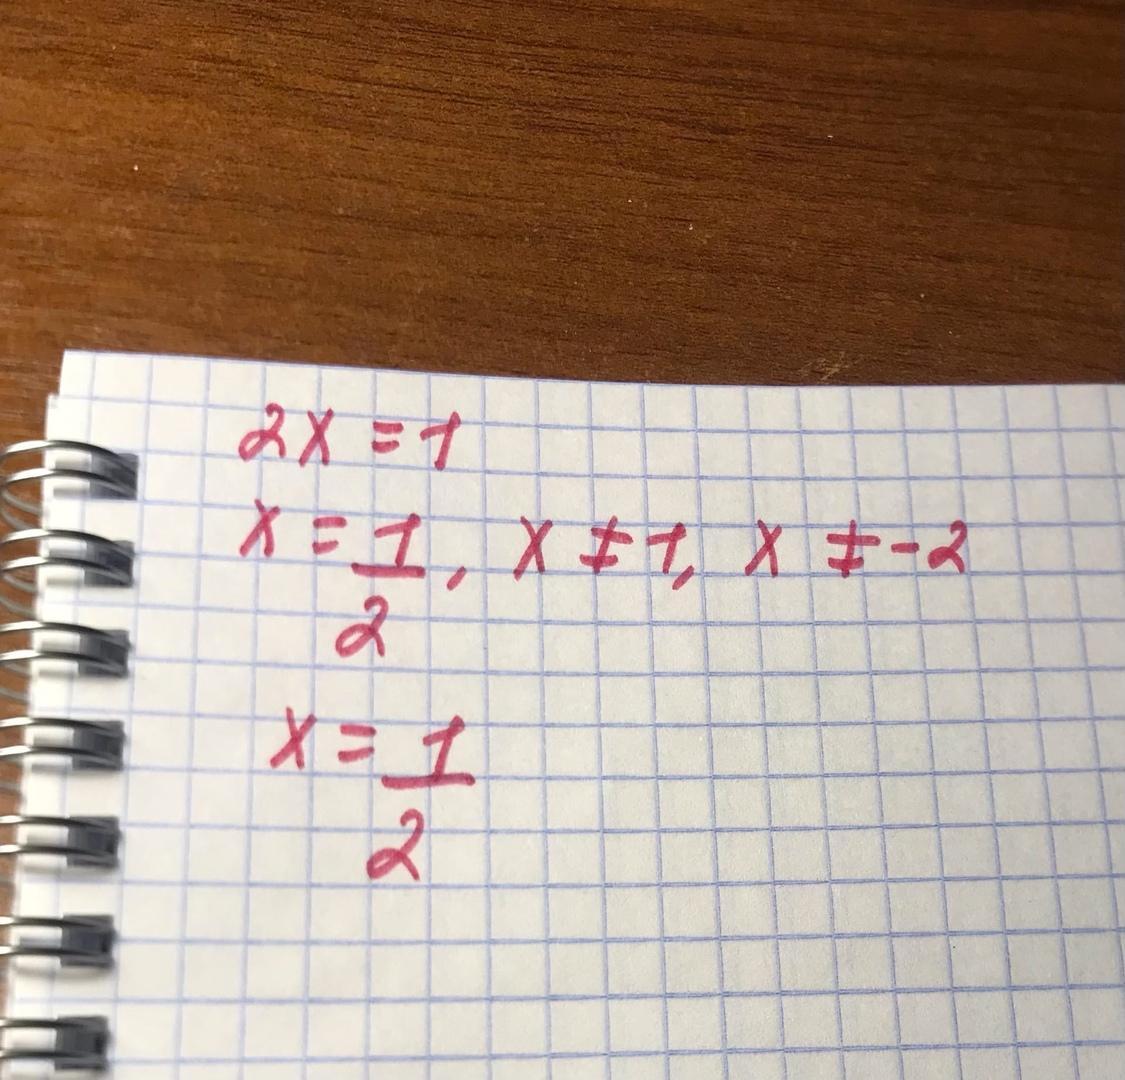 2x = 1
x = 1/2, x ≠ 1, x ≠ -2
x = 1/2